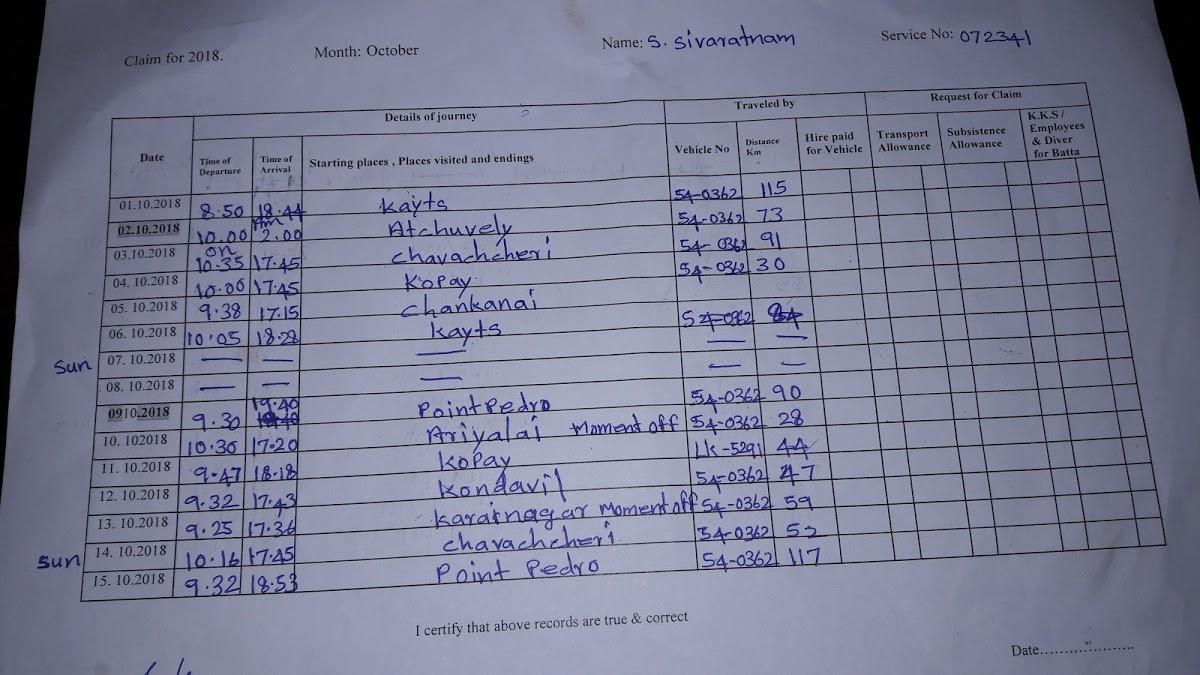 Claim for 2018. Month: October Name: S. Sivaratnam Service No: 072341
Details of journey Traveled by Request for Claim
Date Time of Departure Time of Arrival Starting places , Places visited and endings Vehicle No Distance Km Hire paid for Vehicle Transport Allowance Subsistence Allowance K.K.S / Employees & Diver for Batta
01.10.2018 8.50 18.44 Kayts 54-0362 115
02.10.2018 10.00 2.00 Atchuvely 54-0362 73
03.10.2018 10.35 17.45 Chavachcheri 54-0362 91
04. 10.2018 10.00 17.45 Kopay 54-0362 30
05. 10.2018 9.38 17.15 Chankanai
06. 10.2018 10.05 18.28 Kayts 54-0362 84
Sun 07. 10.2018 — — — — —
08. 10.2018 — — — — —
0910.2018 9.30 19.40 Point Pedro 54-0362 90
10. 102018 10.30 17.20 Ariyalai Moment off 54-0362 28
11. 10.2018 9.47 18.18 Kopay LK-5291 44
12. 10.2018 9.32 17.43 Kondavil 54-0362 47
13. 10.2018 9.25 17.36 Karainagar Moment off 54-0362 59
Sun 14. 10.2018 10.16 17.45 Chavachcheri 54-0362 53
15. 10.2018 9.32 18.53 Point Pedro 54-0362 117
I certify that above records are true & correct
Date.....................